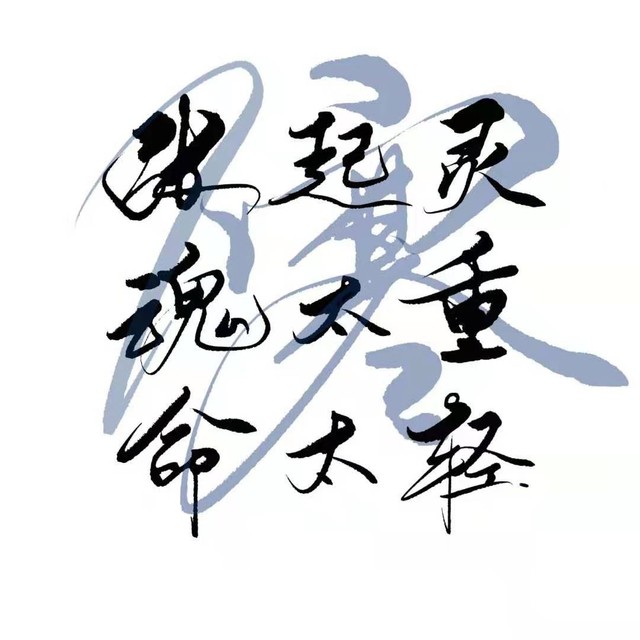 张起灵
魂太重
命太轻